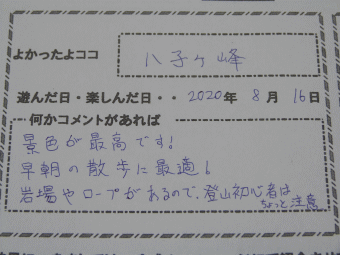 よかったよココ 八子ヶ峰
遊んだ日・楽しんだ日・・ 2020年 8月 16日
何かコメントがあれば
景色が最高です!
早朝の散歩に最適!
岩場やロープがあるので、登山初心者は
ちょっと注意